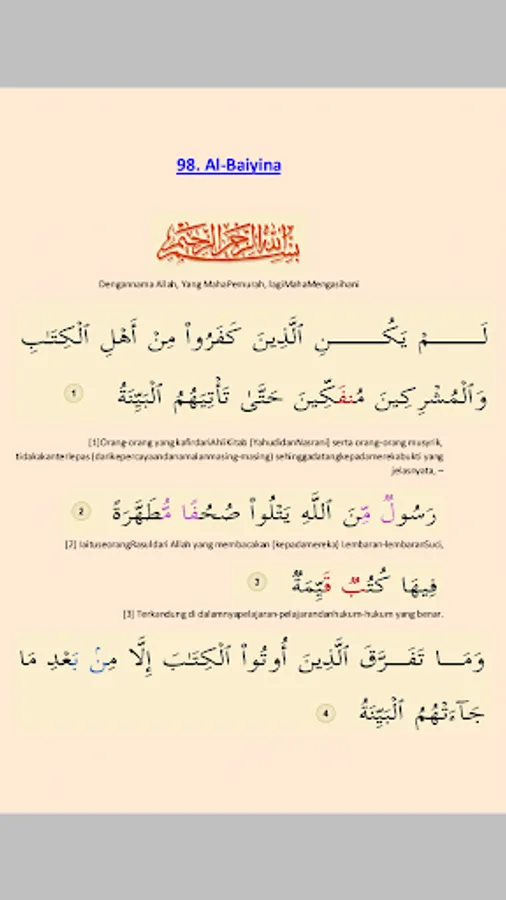 98. Al-Baiyina
بِسْمِ اللَّهِ الرَّحْمَنِ الرَّحِيمِ
Dengannama Allah, Yang MahaPemurah, lagiMahaMengasihani
لَـــــمْ يَكُـــــنِ ٱلَّذِينَ كَفَرُوا۟ مِنْ أَهْلِ ٱلْكِتَـٰبِ
وَٱلْمُشْرِكِينَ مُنفَكِّينَ حَتَّىٰ تَأْتِيَهُمُ ٱلْبَيِّنَةُ 1
[1]Orang-orang yang kafirdariAhliKitab (YahudidanNasrani) serta orang-orang musyrik,
tidakakanterlepas (darikepercayaandanamalanmasing-masing) sehinggadatangkepadamerekabukti yang
jelasnyata, –
رَسُولٌ مِّنَ ٱللَّهِ يَتْلُوا۟ صُحُفًا مُّطَهَّرَةً 2
[2] IaituseorangRasuldari Allah yang membacakan (kepadamereka) Lembaran-lembaranSuci,
فِيهَا كُتُبٌ قَيِّمَةٌ 3
[3] Terkandung di dalamnyapelajaran-pelajarandanhukum-hukum yang benar.
وَمَـــا تَفَـــرَّقَ ٱلَّذِينَ أُوتُوا۟ ٱلْكِتَـٰبَ إِلَّا مِنۢ بَعْدِ مَا
جَآءَتْهُمُ ٱلْبَيِّنَةُ 4